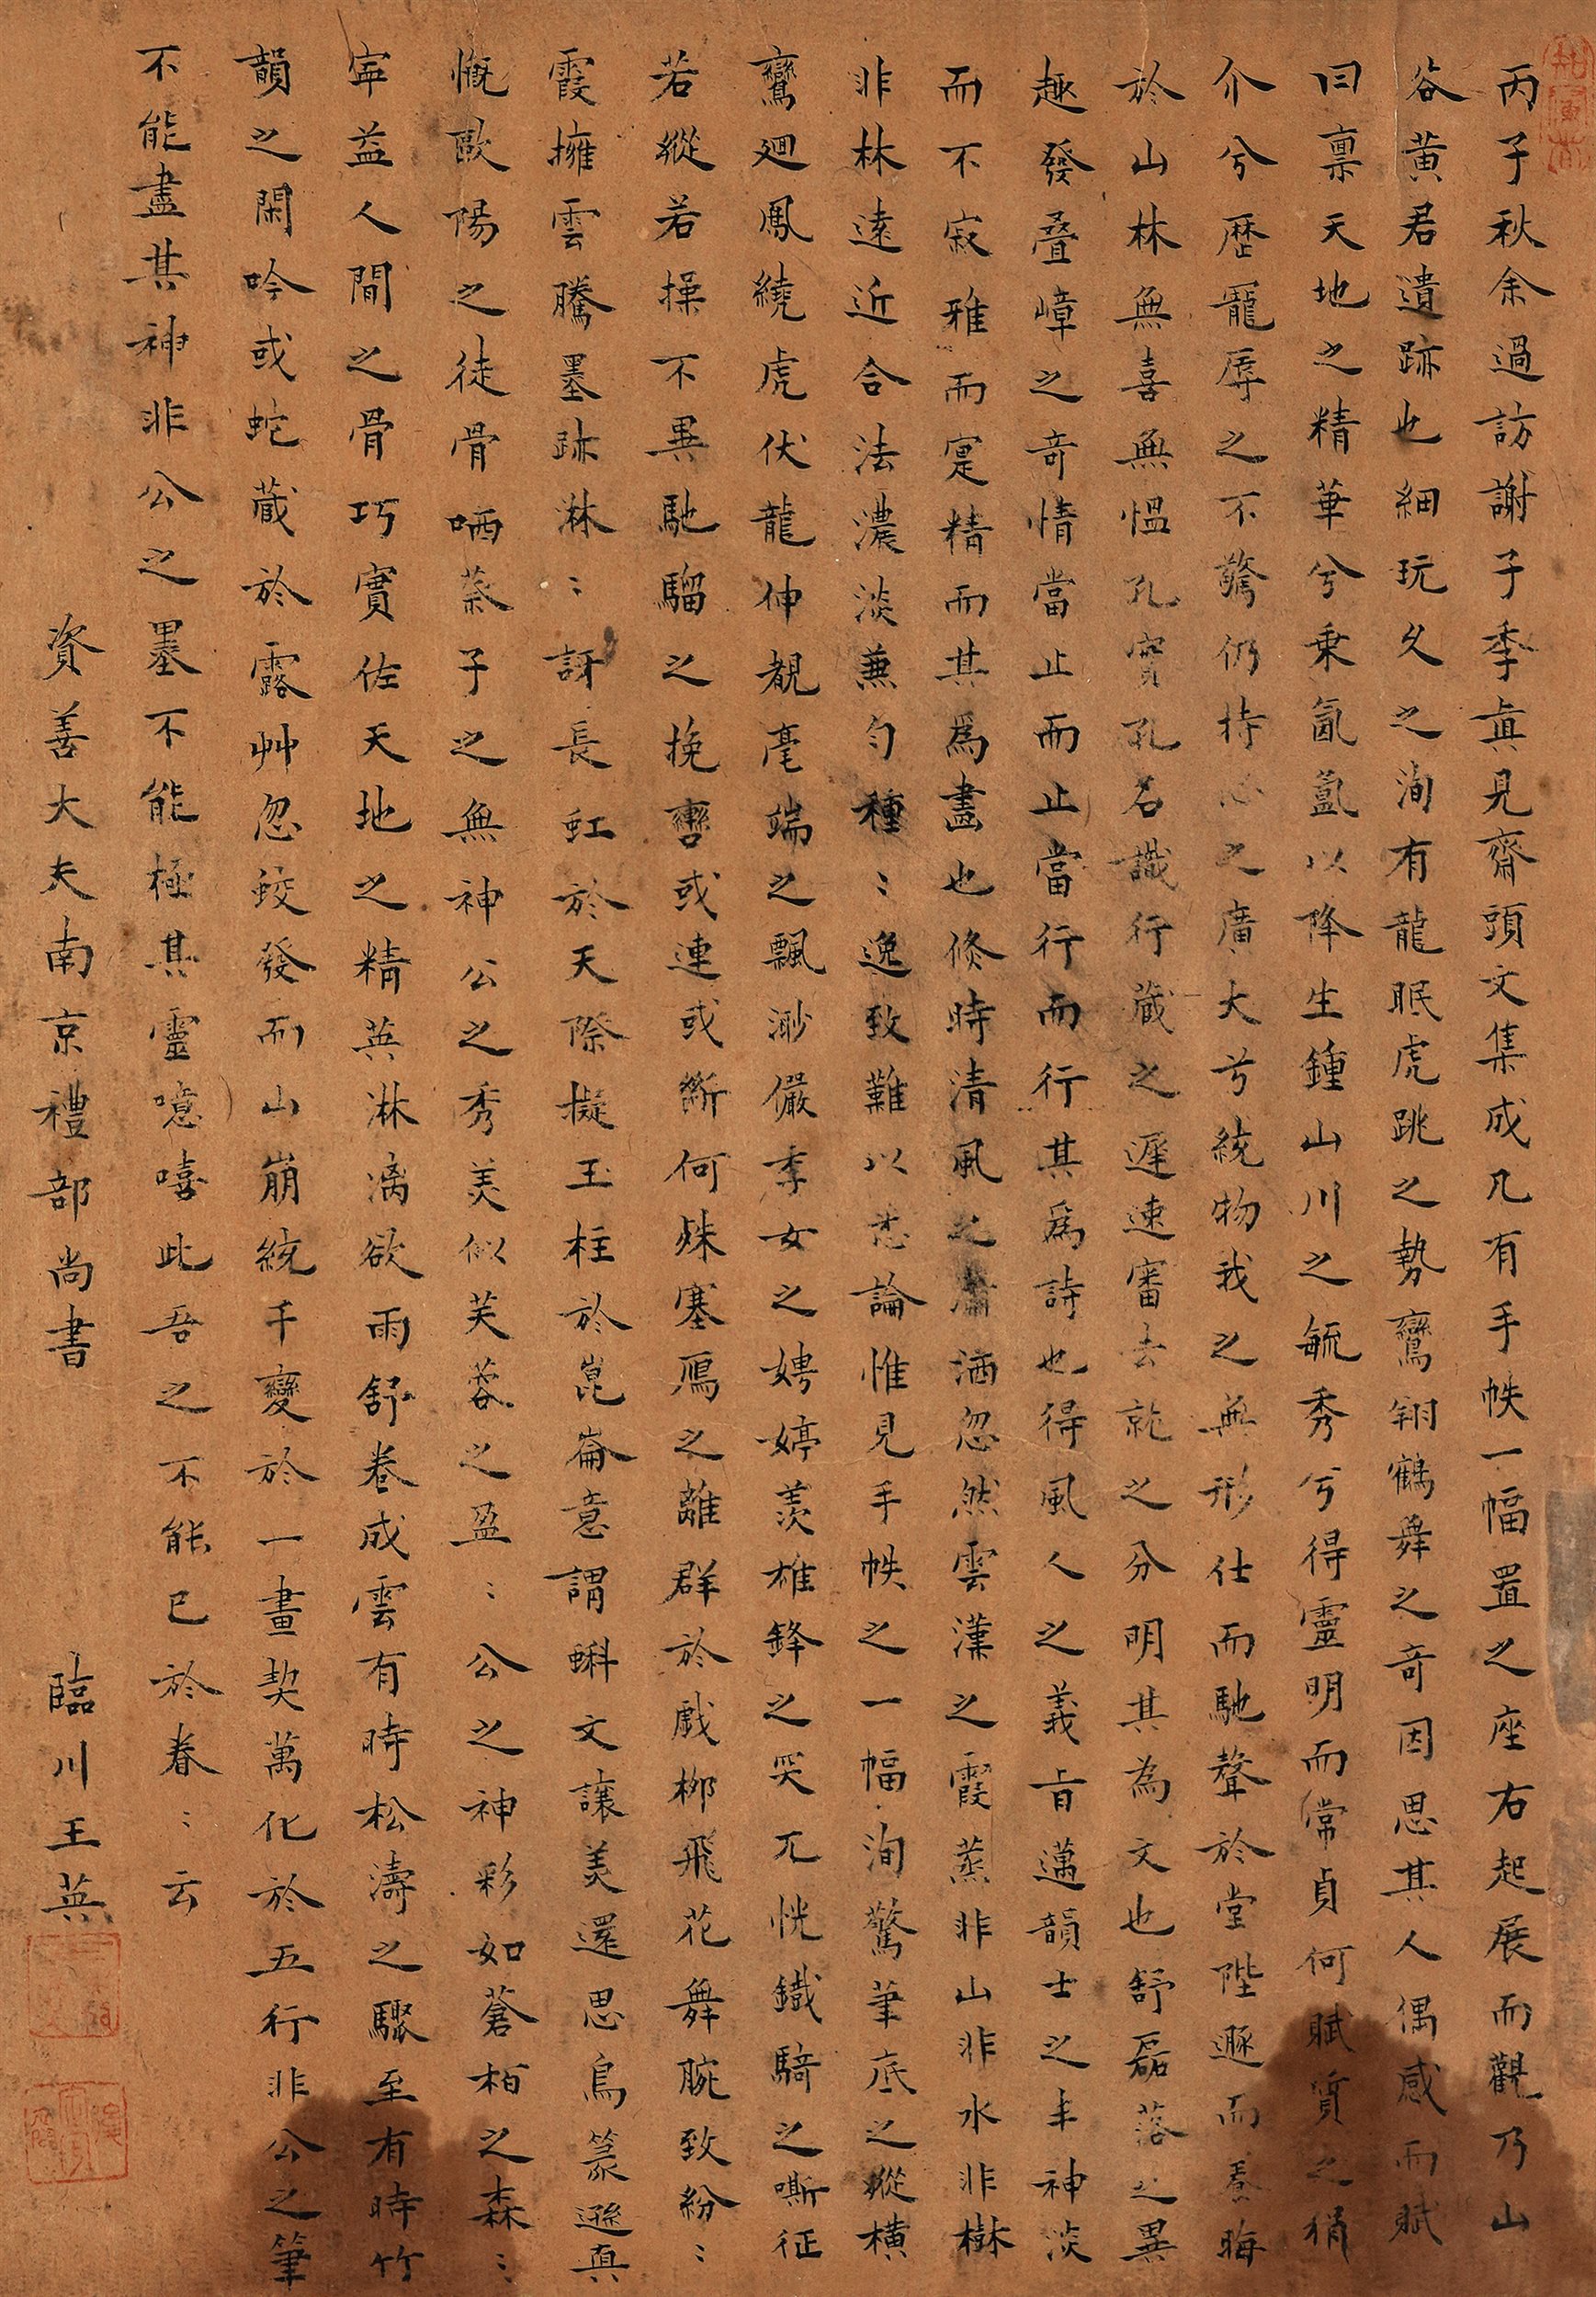 丙子秋余過訪謝子季真見齋頭文集成凡有手帙一幅置之座右起展而觀乃山
谷黄君遺跡也細玩久之洵有龍眠虎跳之勢鸞翔鶴舞之奇因思其人偶感而賦
曰禀天地之精華兮乗氤氳以降生鍾山川之毓秀兮得靈明而常貞何賦質之狷
介兮歴寵辱之不驚仍持心之廣大兮統物我之無形仕而馳聲於堂陛遯而養晦
於山林無喜無慍孔實孔名識行藏之遲速審去就之分明其為文也舒磊落之異
趣發疊嶂之奇情當止而止當行而行其爲詩也得風人之義旨邁韻士之丰神淡
而不寂雅而寔精而其爲畫也倏時清風之瀟洒忽然雲漢之霞蒸非山非水非樹
非林遠近合法濃淡兼勻種〻逸致難以悉論惟見手帙之一幅洵驚筆底之縱横
鸞廻鳳繞虎伏龍伸覩毫端之飄渺儼季女之娉婷羨雄鋒之突兀恍鐡騎之嘶征
若縱若操不異馳騮之挽轡或連或斷何殊塞鴈之離群於戲栁飛花舞腕致紛〻
霞擁雲騰墨跡淋〻訝長虹於天際擬玉柱於崑崙意謂蝌文讓美還思鳥篆遜真
慨歐陽之徒骨哂蔡子之無神公之秀美似芙蓉之盈〻公之神彩如蒼柏之森〻
寧益人間之骨巧實佐天地之精英淋漓欲雨舒巻成雲有時松濤之驟至有時竹
韻之閑吟或蛇蔵於露艸忽蛟發而山崩統千變於一畫契萬化於五行非公之筆
不能盡其神非公之墨不能極其靈噫嘻此吾之不能已於眷〻云
資善大夫南京禮部尚書 臨川王英